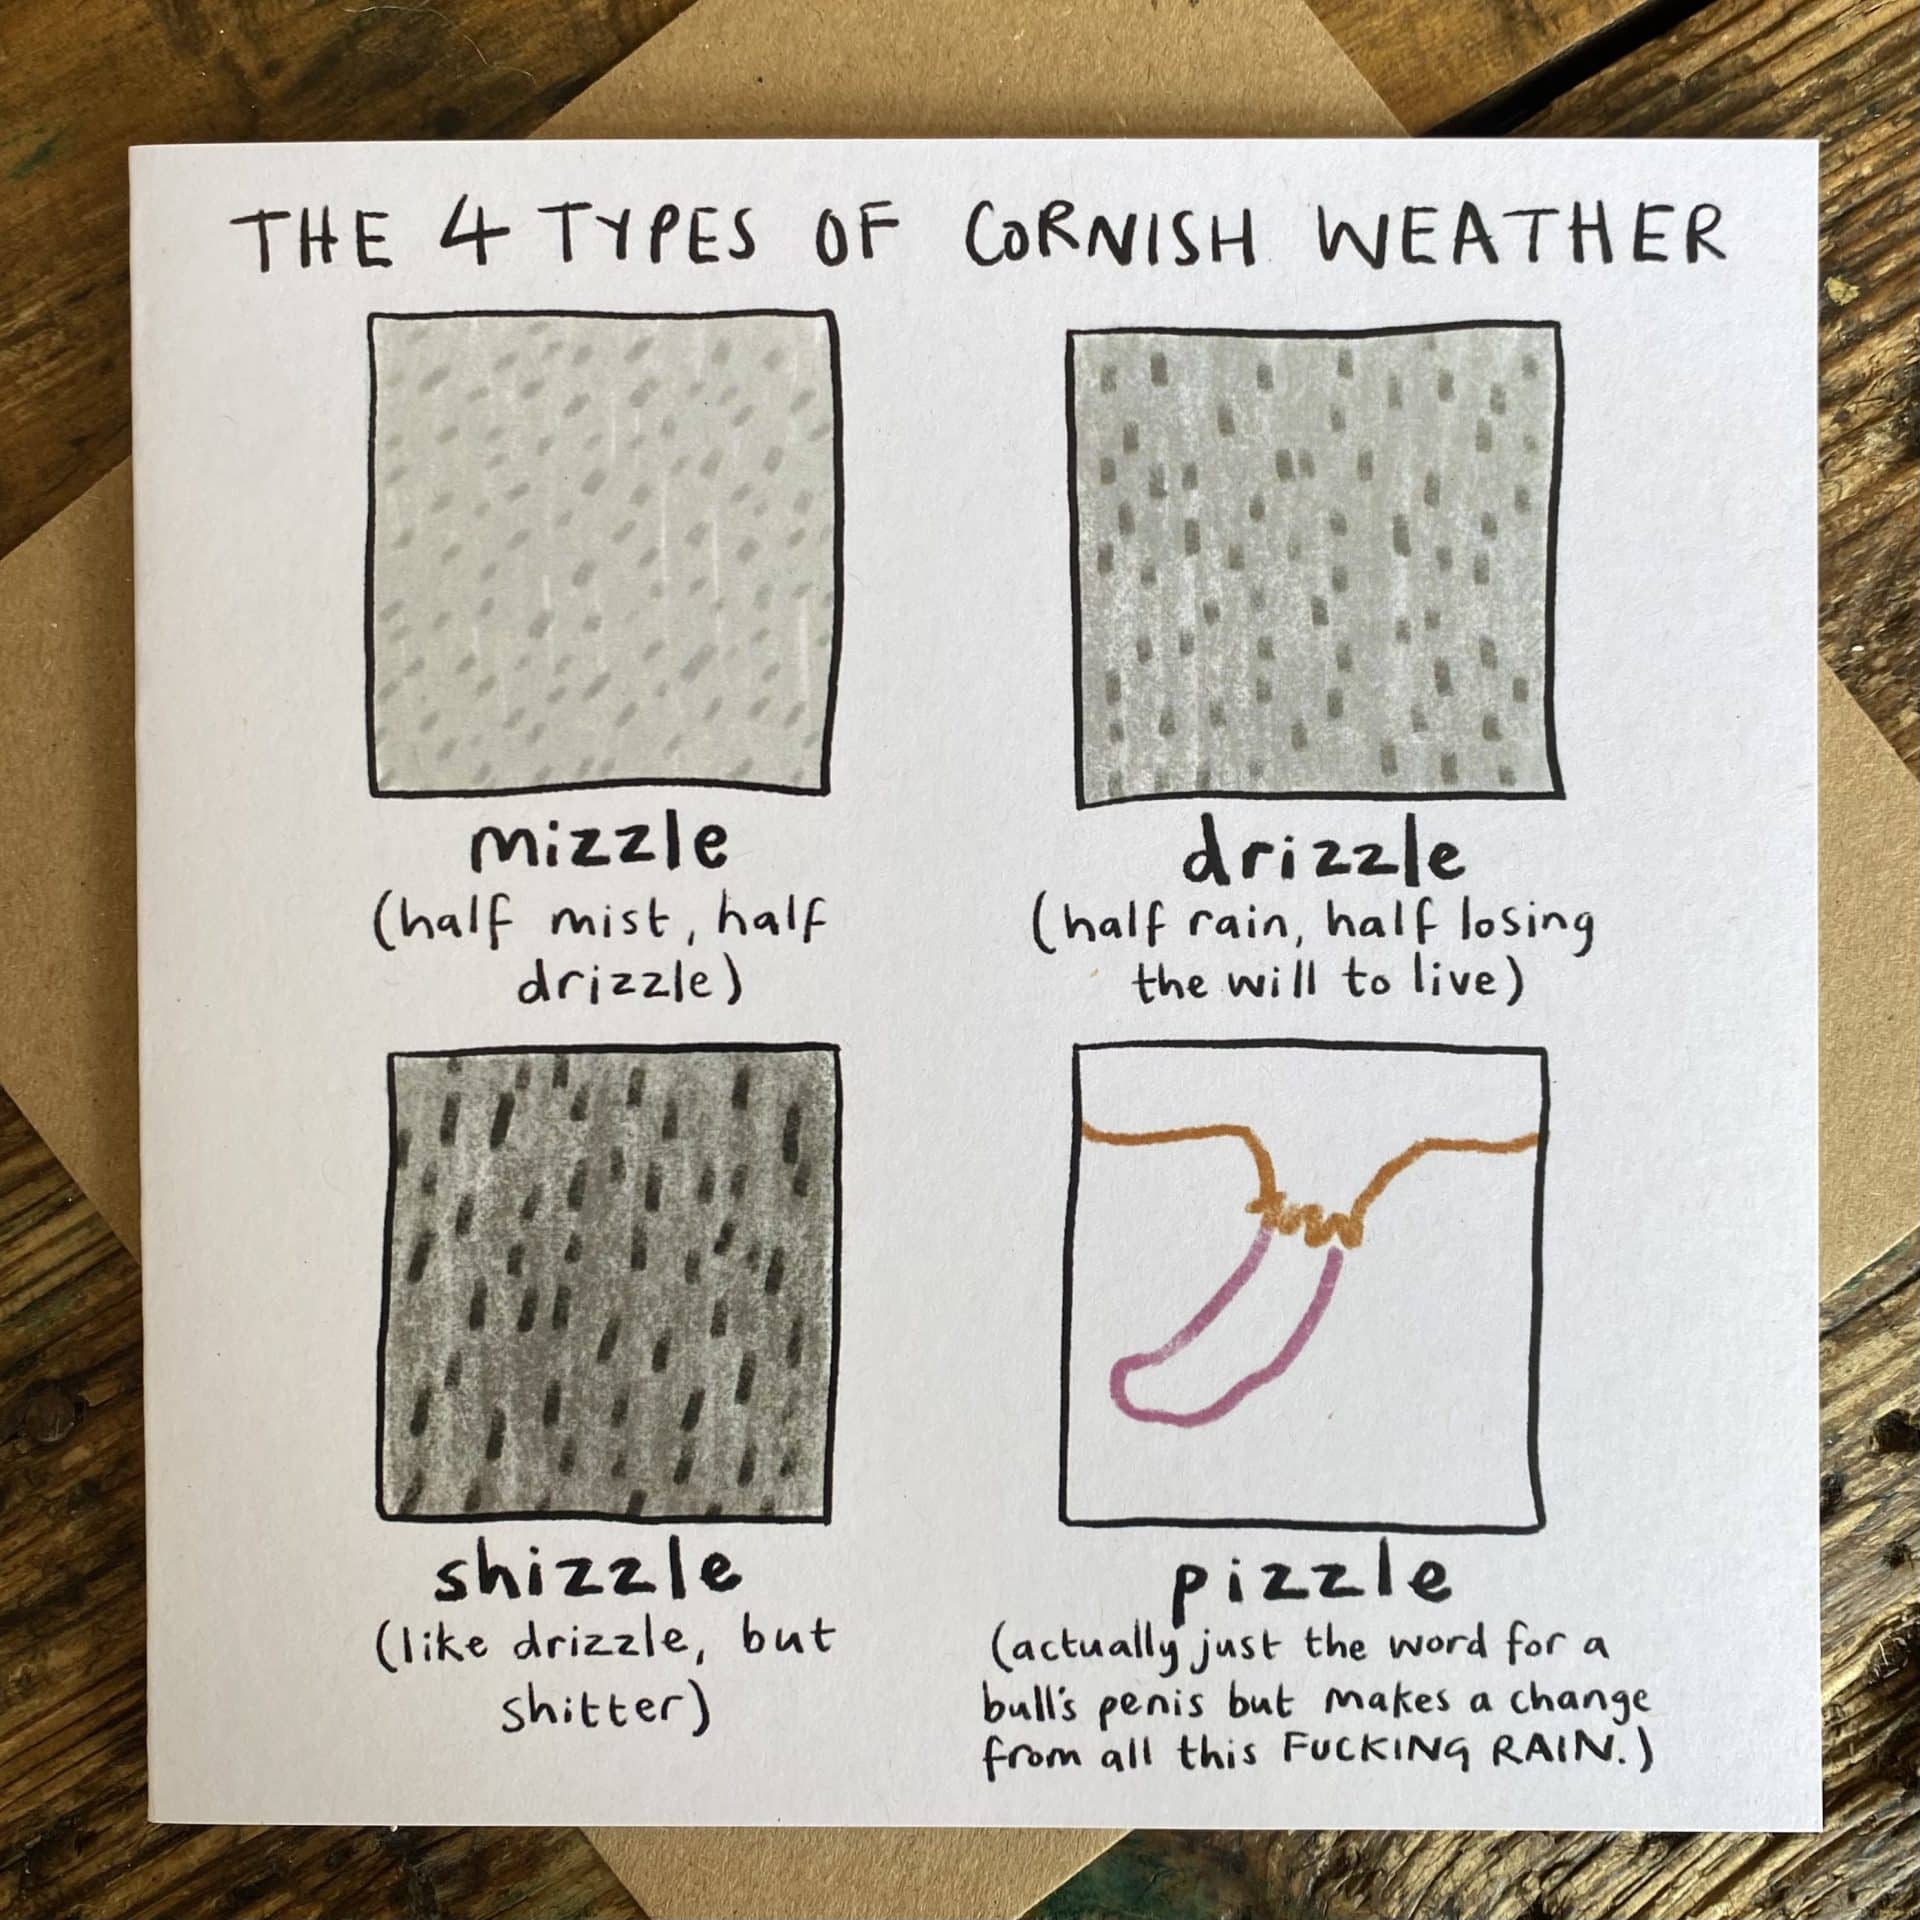 THE 4 TYPES OF CORNISH WEATHER
mizzle
(half mist, half
drizzle)
drizzle
(half rain, half losing
the will to live)
shizzle
(like drizzle, but
shitter)
pizzle
(actually just the word for a
bull's penis but makes a change
from all this FUCKING RAIN.)